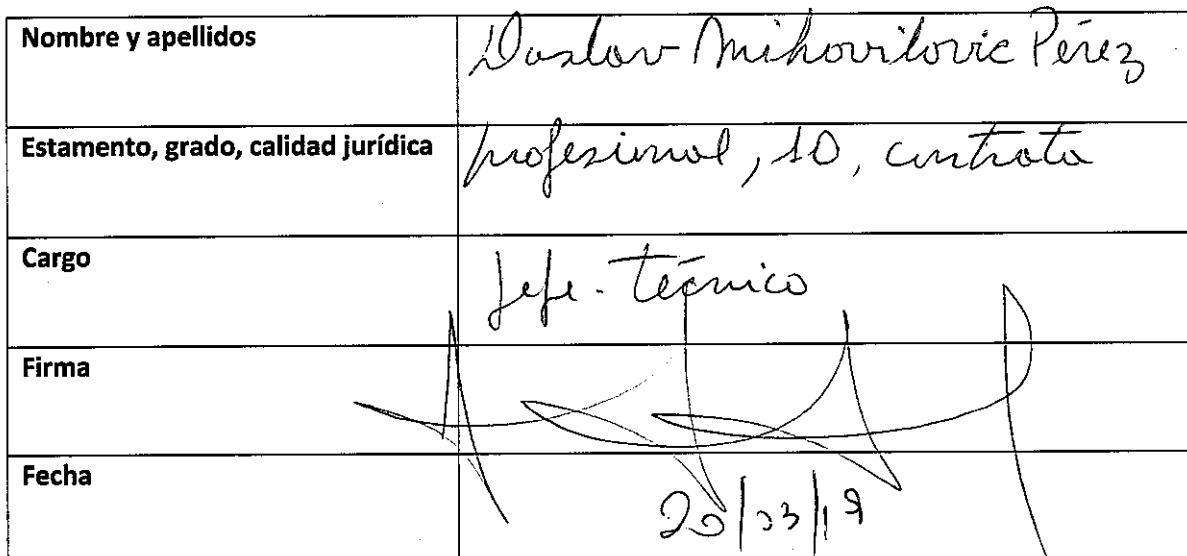 Nombre y apellidos
Doslov Mihovilovic Pérez
Estamento, grado, calidad jurídica
profesional, 10, contrata
Cargo
Jefe técnico
Firma
Fecha
20/03/19